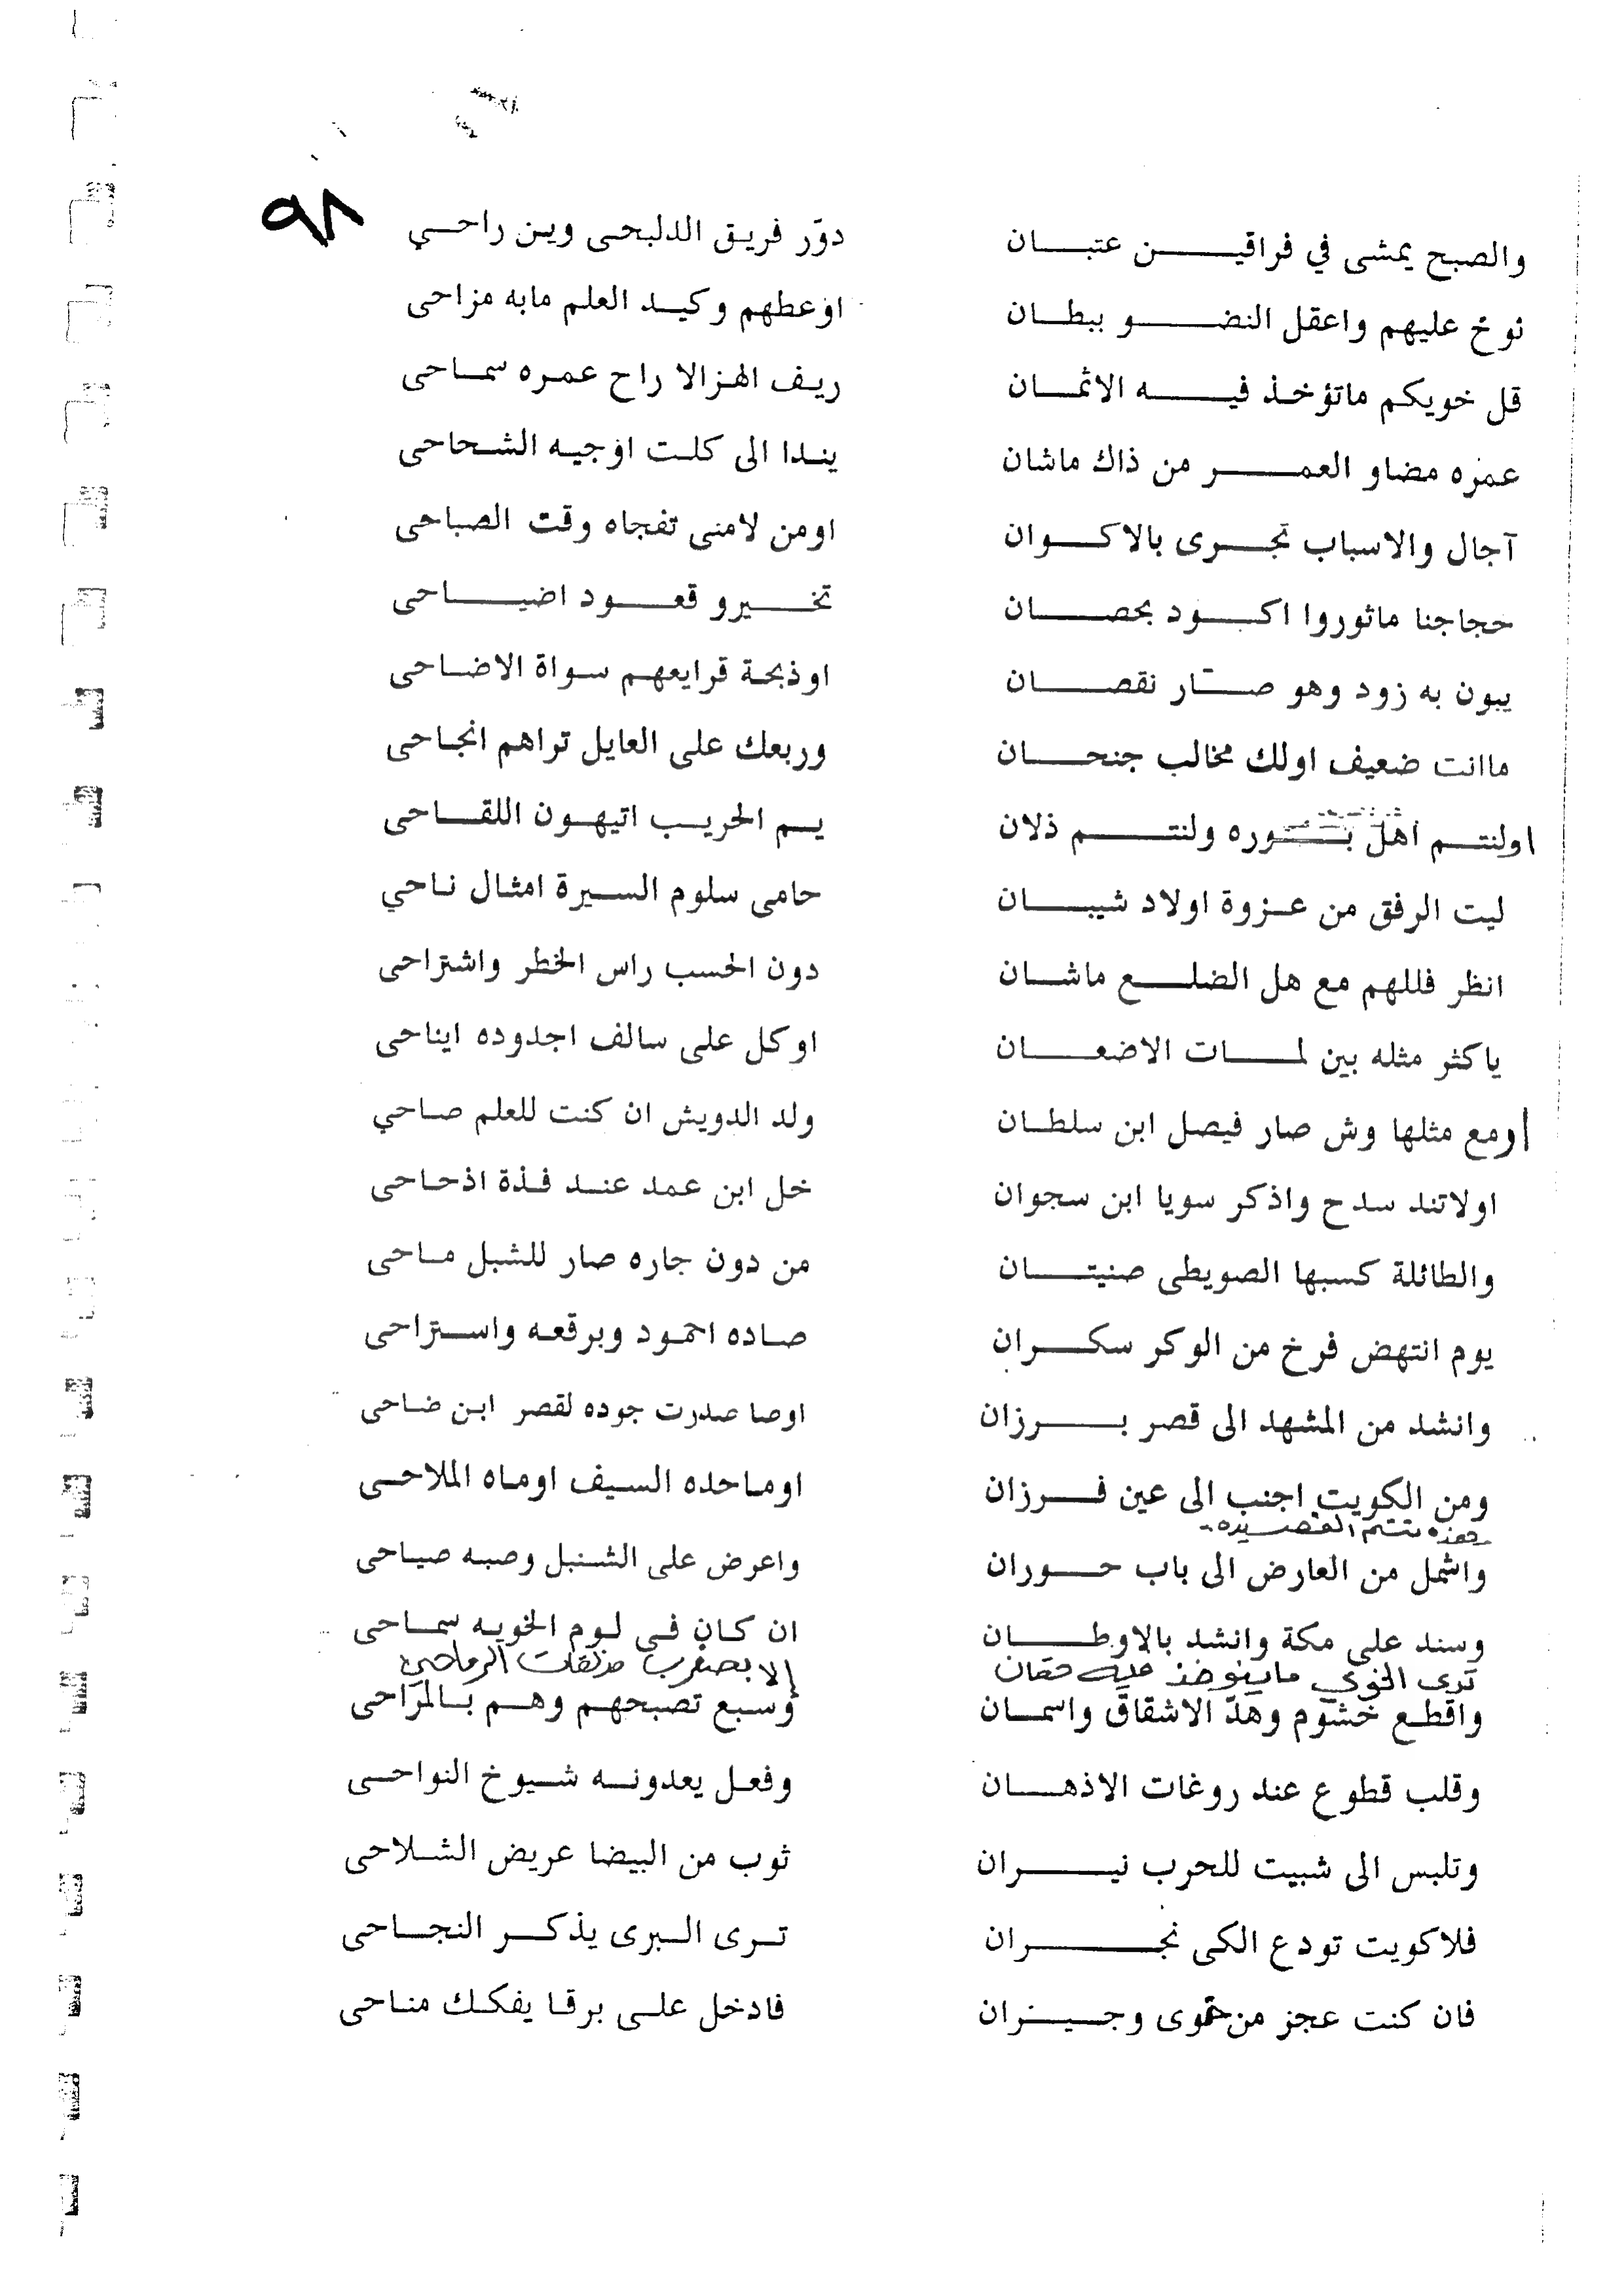 ٩٨
والصبح يمشى في فراقين عتبان دوّر فريق الدلبحى وين راحي
نوخ عليهم واعقل النضو ببطان اوعطهم وكيد العلم مابه مزاحى
قل خويكم ماتؤخذ فيه الاثمان ريف الهزالا راح عمره سماحى
عمره مضاو العمر من ذاك ماشان يندا الى كلت اوجيه الشحاحى
آجال والاسباب تجرى بالاكوان اومن لامنى تفجاه وقت الصباحى
حجاجنا ماثوروا اكود بحصان تخيرو قعود اضياحى
يبون به زود وهو صار نقصان اوذبحة قرايعهم سواة الاضاحى
ماانت ضعيف اولك مخالب جنحان وربعك على العايل تراهم انجاحى
اولنتم اهل بوره ولنتم ذلان يم الحريب اتيهون اللقاحى
ليت الرفق من عزوة اولاد شيبان حامى سلوم السيرة امثال ناحي
انظر فللهم مع هل الضلع ماشان دون الحسب راس الخطر واشتراحى
ياكثر مثله بين لمات الاضعان اوكل على سالف اجدوده ايناحى
اومع مثلها وش صار فيصل ابن سلطان ولد الدويش ان كنت للعلم صاحي
اولاتند سدح واذكر سويا ابن سجوان خل ابن عمد عند فذة اذحاحى
والطائلة كسبها الصويطى صنيتان من دون جاره صار للشبل ماحى
يوم انتهض فرخ من الوكر سكران صاده احمود وبرقعه واستراحى
وانشد من المشهد الى قصر برزان اوصا صدرت جوده لقصر ابن ضاحى
ومن الكويت اجنب الى عين فرزان اوماحده السيف اوماه الملاحى
هذه تتم القصيده
واشمل من العارض الى باب حوران واعرض على الشنبل وصبه صياحى
وسند على مكة وانشد بالاوطان ان كان في لوم الخويه سماحى
ترى الخوي ما ينوخذ فيه حقان إلا بضرب مذلقات الرماحي
واقطع خشوم وهدّ الاشقاق واسمان وسبع تصبحهم وهم بالمراحى
وقلب قطوع عند روغات الاذهان وفعل يعدونه شيوخ النواحى
وتلبس الى شبيت للحرب نيران ثوب من البيضا عريض الشلاحى
فلاكويت تودع الكى نجران ترى البرى يذكر النجاحى
فان كنت عجز من وجيران فادخل على برقا يفكك مناحى